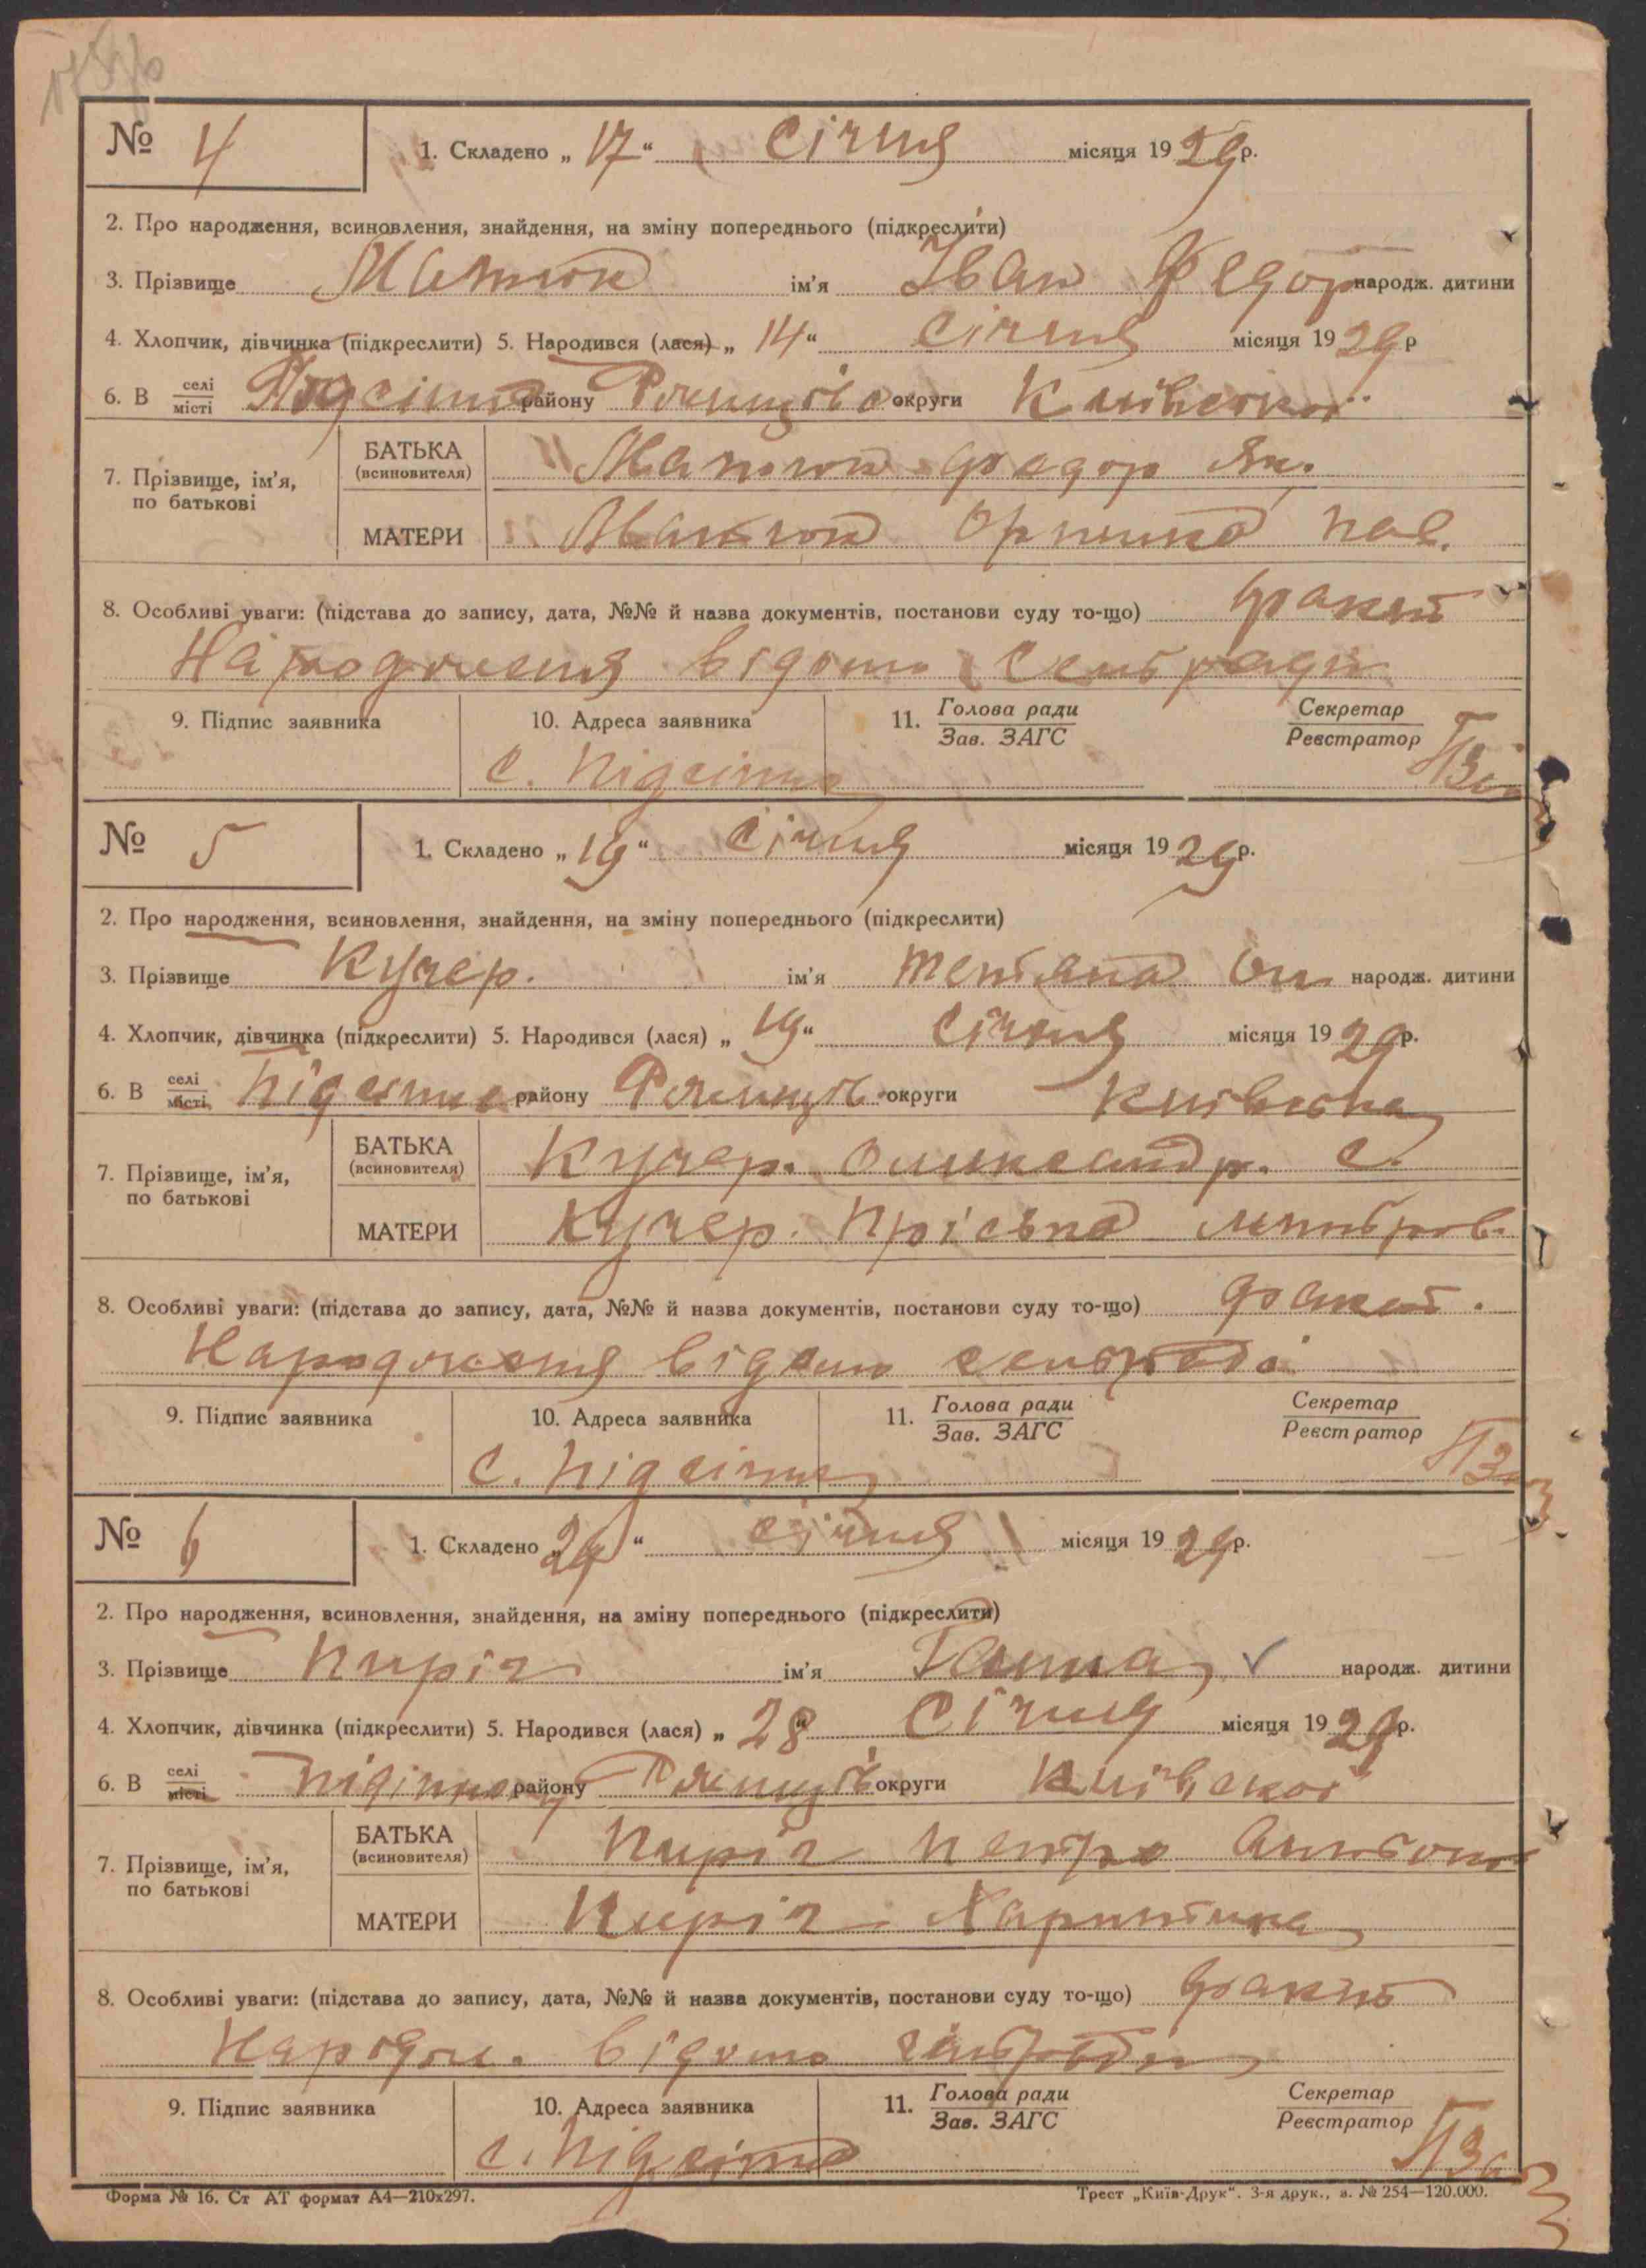 № 4 1. Складено „ 17 “ січня місяця 19 29 р.
2. Про народження, всиновлення, знайдення, на зміну попереднього (підкреслити)
3. Прізвище Матюк ім'я Іван Федор народж. дитини
4. Хлопчик, дівчинка (підкреслити) 5. Народився (лася) „ 14 “ січня місяця 19 29 р
6. В селі/місті району округи Київської
7. Прізвище, ім'я, по батькові
БАТЬКА (всиновителя) Матюк Федор Як.
МАТЕРИ Матюк Орпина Пав.
8. Особливі уваги: (підстава до запису, дата, №№ й назва документів, постанови суду то-що) факт
Народження відомо сельради
9. Підпис заявника 10. Адреса заявника 11. Голова ради/Зав. ЗАГС Секретар/Реєстратор
с. Підсінне
№ 5 1. Складено „ 19 “ січня місяця 19 29 р.
2. Про народження, всиновлення, знайдення, на зміну попереднього (підкреслити)
3. Прізвище Кучер. ім'я Тетяна Ол народж. дитини
4. Хлопчик, дівчинка (підкреслити) 5. Народився (лася) „ 19 “ січня місяця 19 29 р.
6. В селі/місті Підсінне району округи Київська
7. Прізвище, ім'я, по батькові
БАТЬКА (всиновителя) Кучер. Олександр. С.
МАТЕРИ Кучер. Пріська
8. Особливі уваги: (підстава до запису, дата, №№ й назва документів, постанови суду то-що) факт.
Народження відомо сельраді
9. Підпис заявника 10. Адреса заявника 11. Голова ради/Зав. ЗАГС Секретар/Реєстратор
с. Підсінне
№ 6 1. Складено „ 29 “ січня місяця 19 29 р.
2. Про народження, всиновлення, знайдення, на зміну попереднього (підкреслити)
3. Прізвище Киріч ім'я Ганна народж. дитини
4. Хлопчик, дівчинка (підкреслити) 5. Народився (лася) „ 28 “ січня місяця 19 29 р.
6. В селі/місті району округи Київської
7. Прізвище, ім'я, по батькові
БАТЬКА (всиновителя) Киріч Петро Антонов
МАТЕРИ Киріч Харитина
8. Особливі уваги: (підстава до запису, дата, №№ й назва документів, постанови суду то-що) факт
Народж. відомо
9. Підпис заявника 10. Адреса заявника 11. Голова ради/Зав. ЗАГС Секретар/Реєстратор
с. Підсінне
Форма № 16. Ст АТ формат А4—210х297. Трест „Київ-Друк“. 3-я друк., з. № 254—120.000.